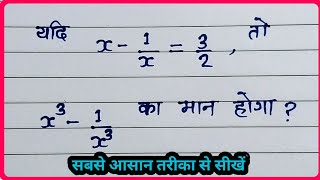 यदि x - 1/x = 3/2 , तो
x³ - 1/x³ का मान होगा ?
सबसे आसान तरीका से सीखें